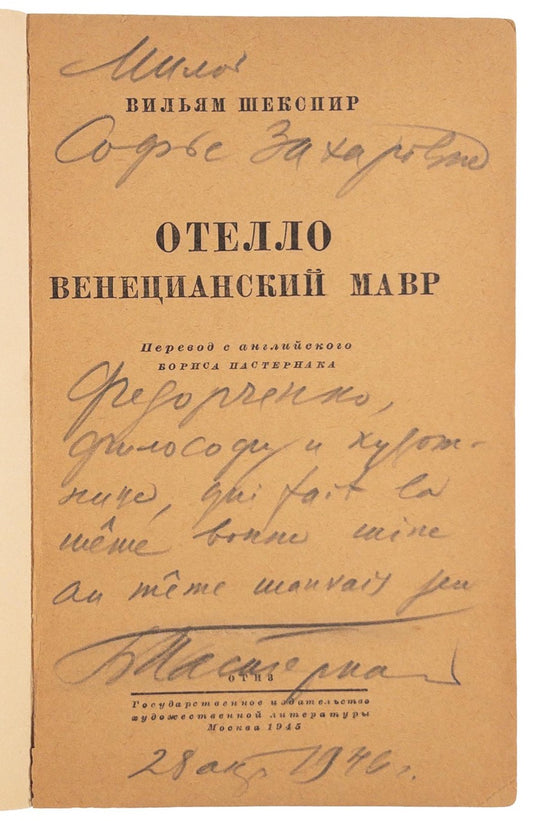 Милой
ВИЛЬЯМ ШЕКСПИР
Софье Захаровне
ОТЕЛЛО
ВЕНЕЦИАНСКИЙ МАВР
Перевод с английского
БОРИСА ПАСТЕРНАКА
Федорченко,
философу и худож-
нице, qui fait la
même bonne mine
au même mauvais jeu
БПастернак
ОГИЗ
Государственное издательство
художественной литературы
Москва 1945
28 1946 г.